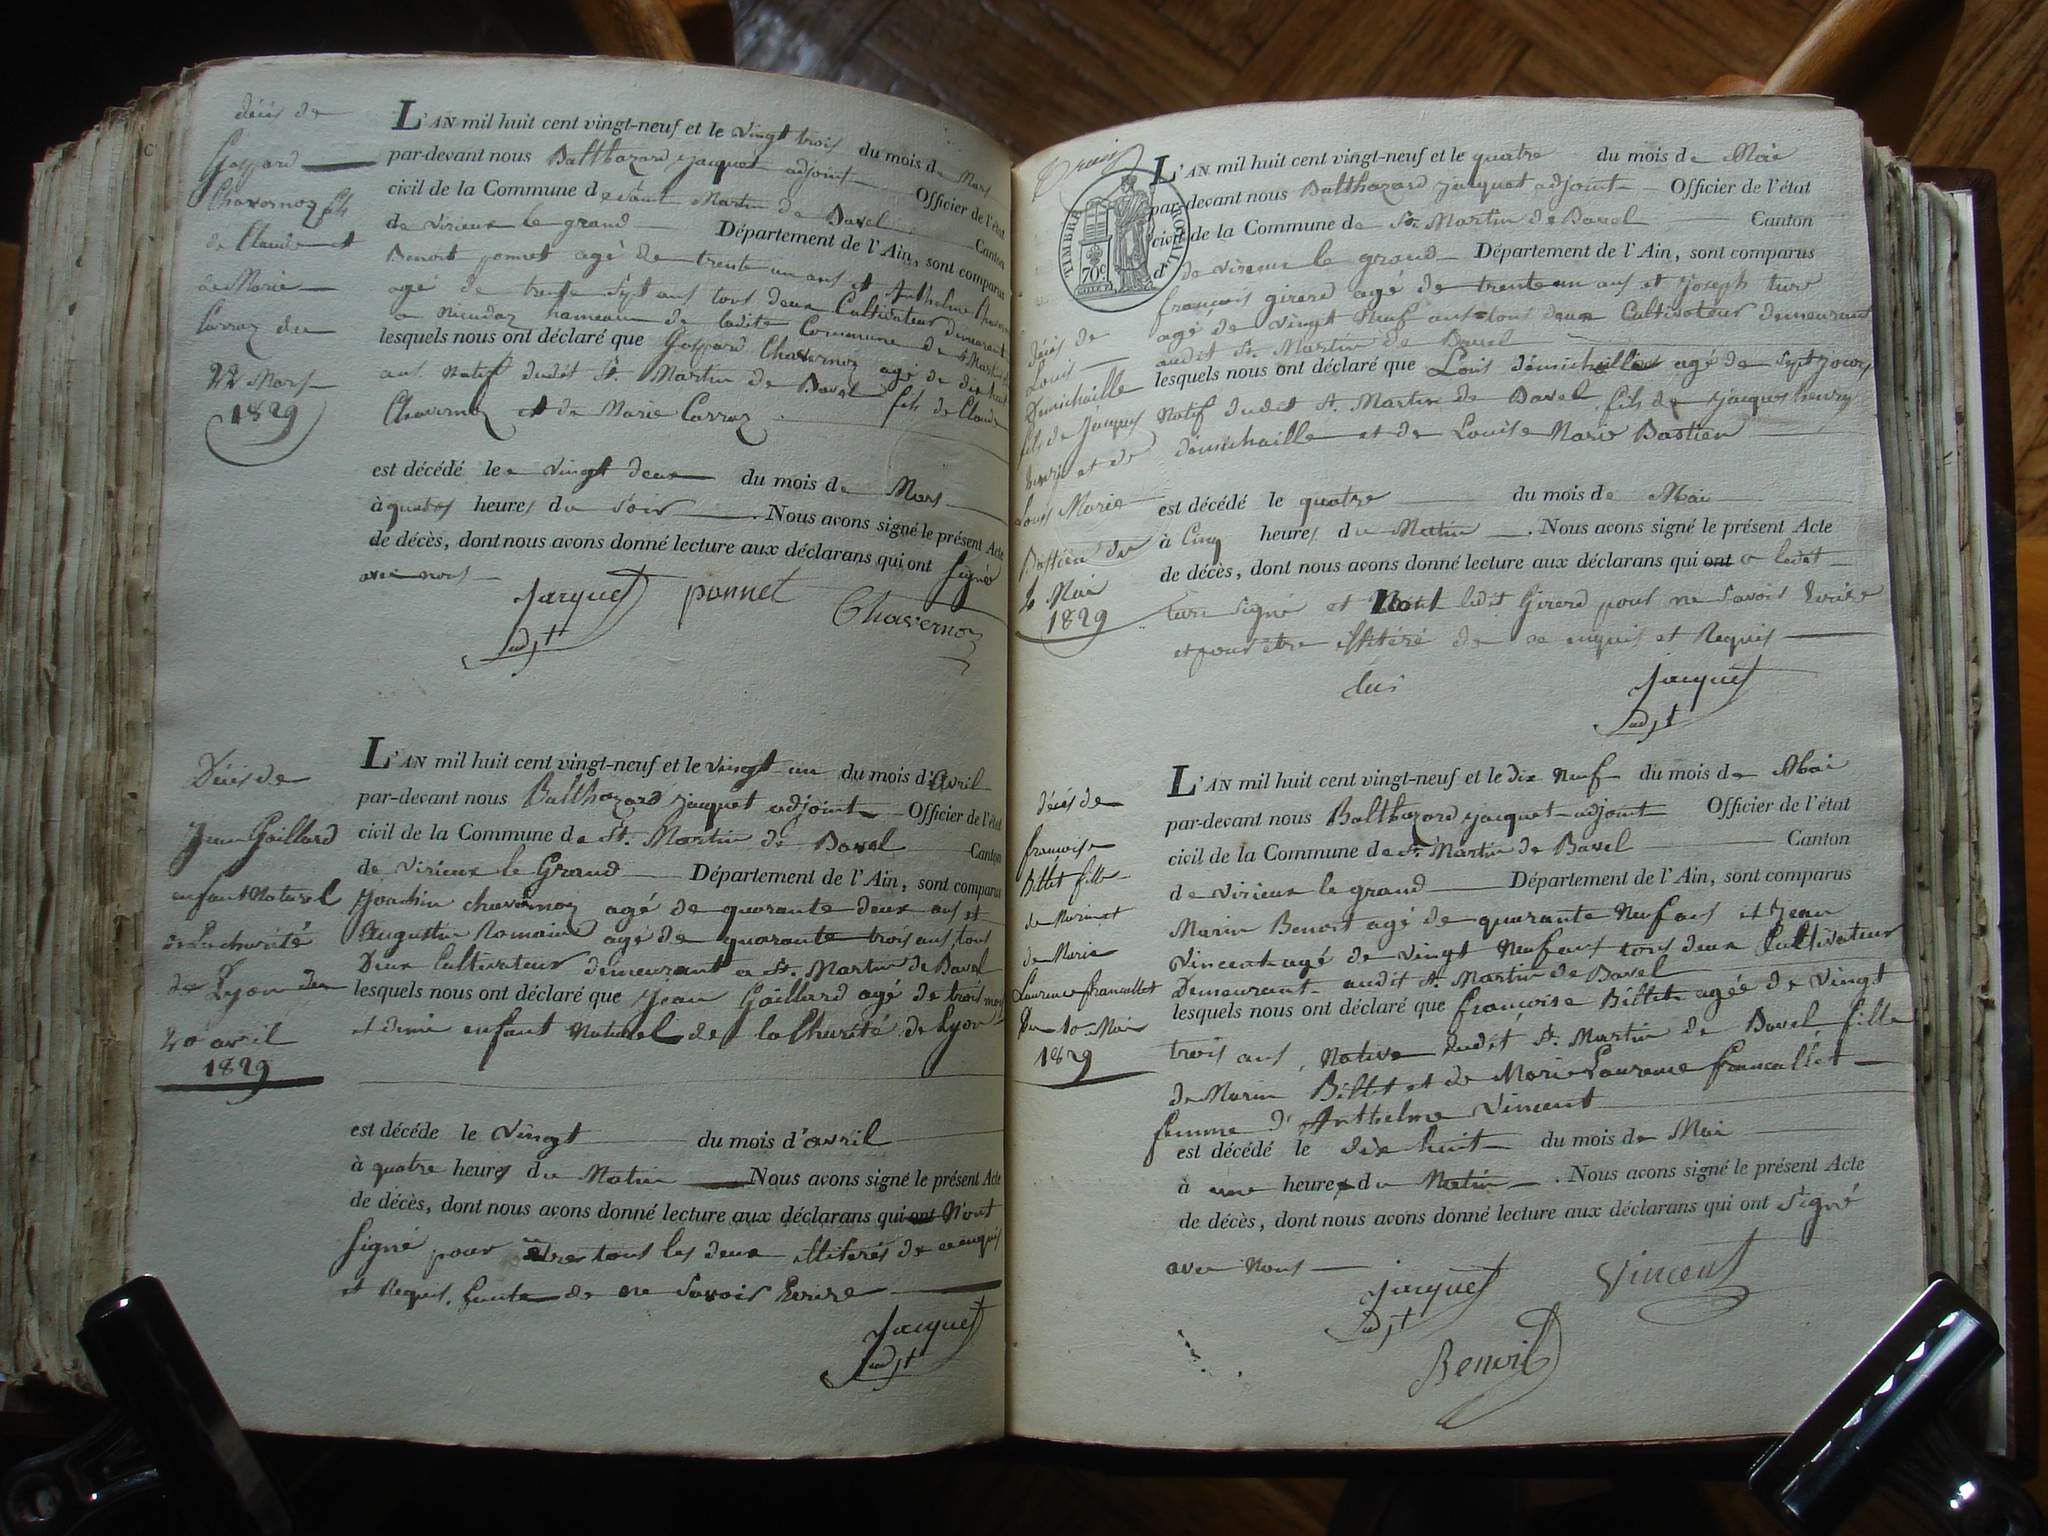 décès de
Gaspard
Chavornoz fils
de Claude et
de Marie
Carraz du
22 Mars
1829
L'AN mil huit cent vingt-neuf et le vingt trois du mois de Mars
par-devant nous Balthazard jacquet adjoint Officier de l'état
civil de la Commune de Saint Martin de Bavel Canton
de Virieux le grand Département de l'Ain, sont comparus
Benoit ponnet agé de trente un ans et Anthelme
agé de trente sept ans tous deux Cultivateur demeurant
a hameau de ladite Commune de St Martin
lesquels nous ont déclaré que Gaspard Chavornoz agé de dix huit
ans Natif dudit St. Martin de Bavel fils de Claude
Chavornoz et de Marie Carraz
est décédé le vingt deux du mois de Mars
à quatres heures du Soir . Nous avons signé le présent Acte
de décès, dont nous avons donné lecture aux déclarans qui ont signé
avec nous
Jacquet ponnet
Chavornoz
adjt
Décès de
Jean Gaillard
enfant Naturel
de La charité
de Lyon du
20 avril
1829
L'AN mil huit cent vingt-neuf et le vingt un du mois d'Avril
par-devant nous Balthazard jacquet adjoint Officier de l'état
civil de la Commune de St. Martin de Bavel Canton
de Virieux le Grand Département de l'Ain, sont comparus
Joachin chavornoz agé de quarante deux ans et
Augustin Romain agé de quarante trois ans tous
Deux Cultivateur demeurant a St. Martin de Bavel
lesquels nous ont déclaré que Jean Gaillard agé de trois mois
et demi enfant Naturel de la Charité de Lyon
est décéde le vingt du mois d'avril
à quatre heures du Matin Nous avons signé le présent Acte
de décès, dont nous avons donné lecture aux déclarans qui ont N'ont
Signé pour être tous les deux illiterés de ce enquis
et Requis. faute de ne Savoir Ecrire
Jacquet
adjt
TIMBRE ROYAL
70c
décès de
Louis
Demichaille
fils de Jacques
henry et de
Louis Marie
Bastien du
4 Mai
1829
L'AN mil huit cent vingt-neuf et le quatre du mois de Mai
par-devant nous Balthazard jacquet adjoint Officier de l'état
civil de la Commune de St. Martin de Bavel Canton
de Virieux le grand Département de l'Ain, sont comparus
françois girerd agé de trente un ans et Joseph ture
agé de vingt Neuf ans tous deux Cultivateur demeurant
audit St. Martin de Bavel
lesquels nous ont déclaré que Louis démichaille agé de Sept jours
Natif dudit St. Martin de Bavel fils de jacques henry
démichaille et de Louise Marie Bastien
est décédé le quatre du mois de Mai
à Cinq heures du Matin . Nous avons signé le présent Acte
de décès, dont nous avons donné lecture aux déclarans qui ont a ledit
ture signé et Non ledit Girerd pour ne Savoir Ecrire
et pour être illitéré de ce enquis et Requis
Jacquet
adjt
décès de
françoise
Billet fille
de Marin et
de Marie
Laurence francallet
Du 18 Mai
1829
L'AN mil huit cent vingt-neuf et le dix Neuf du mois de Mai
par-devant nous Balthazard jacquet adjoint Officier de l'état
civil de la Commune de St. Martin de Bavel Canton
de Virieux le grand Département de l'Ain, sont comparus
Marin Benoit agé de quarante Neuf ans et Jean
Vincent agé de vingt Neuf ans tous deux Cultivateur
Demeurant audit St. Martin de Bavel
lesquels nous ont déclaré que françoise Billet agée de Vingt
trois ans, Native dudit St. Martin de Bavel fille
de Marin Billet et de Marie Laurence francallet
femme d'Anthelme Vincent
est décédé le dix huit du mois de Mai
à une heure du Matin . Nous avons signé le présent Acte
de décès, dont nous avons donné lecture aux déclarans qui ont Signé
avec Nous
Jacquet Vincent
adjt
Benoit